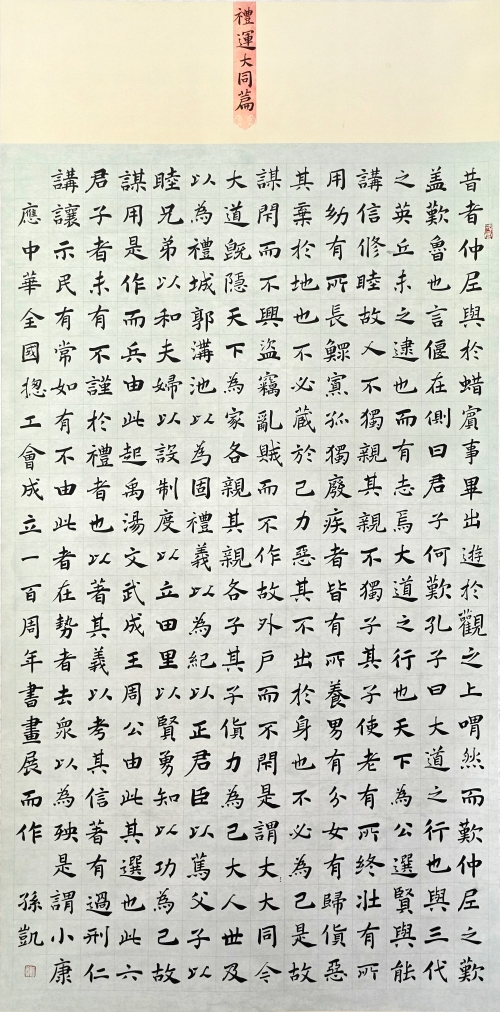 禮運大同篇
昔者仲尼與於蜡賓事畢出遊於觀之上喟然而歎仲尼之歎
蓋歎魯也言偃在側曰君子何歎孔子曰大道之行也與三代
之英丘未之逮也而有志焉大道之行也天下為公選賢與能
講信修睦故人不獨親其親不獨子其子使老有所終壯有所
用幼有所長鰥寡孤獨廢疾者皆有所養男有分女有歸貨惡
其棄於地也不必藏於己力惡其不出於身也不必為己是故
謀閉而不興盜竊亂賊而不作故外戶而不閉是謂大大同今
大道既隱天下為家各親其親各子其子貨力為己大人世及
以為禮城郭溝池以為固禮義以為紀以正君臣以篤父子以
睦兄弟以和夫婦以設制度以立田里以賢勇知以功為己故
謀用是作而兵由此起禹湯文武成王周公由此其選也此六
君子者未有不謹於禮者也以著其義以考其信著有過刑仁
講讓示民有常如有不由此者在勢者去衆以為殃是謂小康
應中華全國摠工會成立一百周年書畫展而作 孫凱